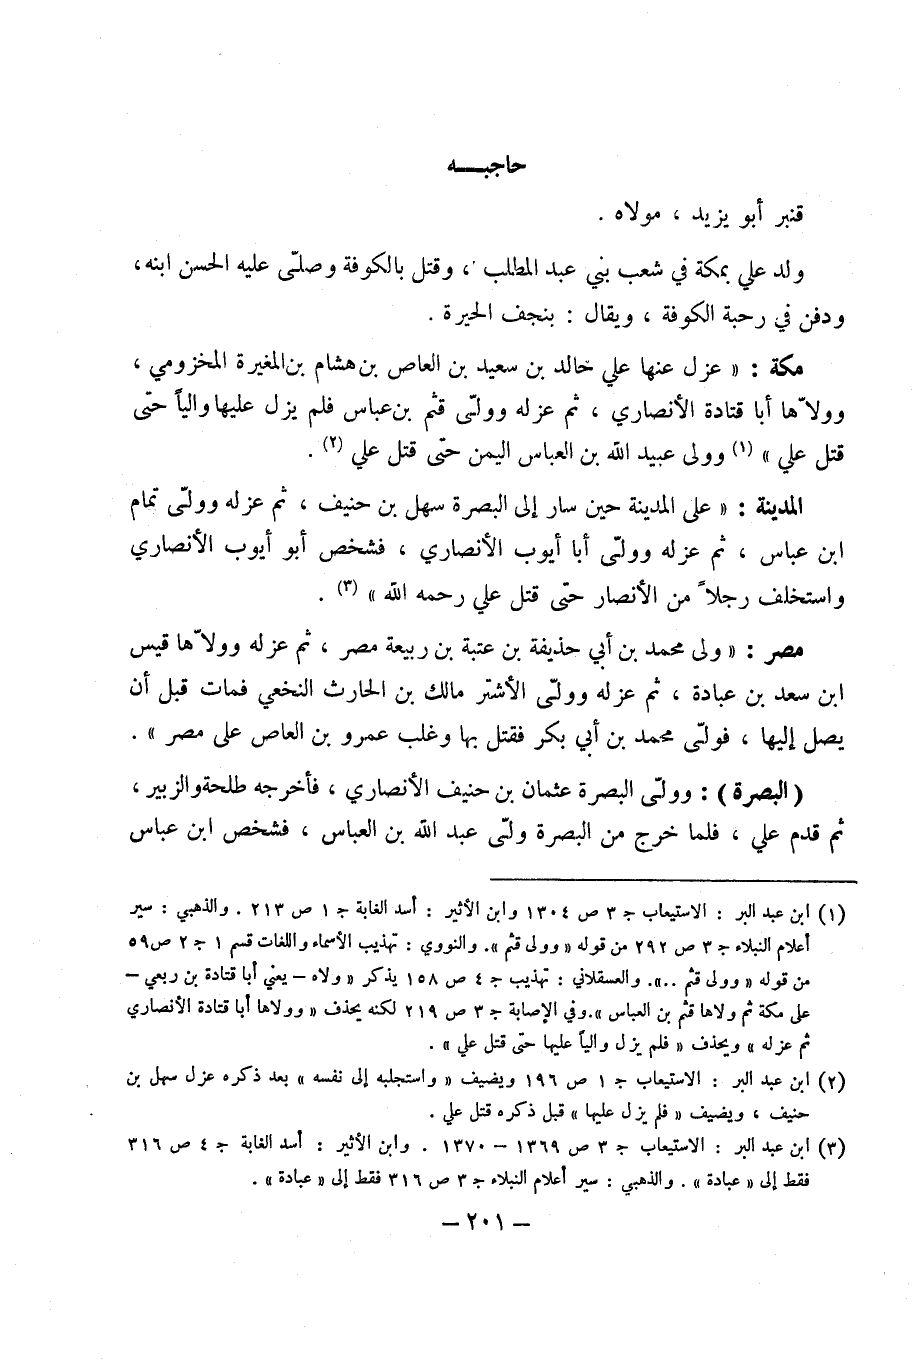 حاجبـــه
قنبر أبو يزيد ، مولاه .
ولد علي بمكة في شعب بني عبد المطلب ، وقتل بالكوفة وصلّى عليه الحسن ابنه ،
ودفن في رحبة الكوفة ، ويقال : بنجف الحيرة .
مكة : « عزل عنها علي خالد بن سعيد بن العاص بن هشام بن المغيرة المخزومي ،
وولاّها أبا قتادة الأنصاري ، ثم عزله وولّى قثم بن عباس فلم يزل عليها والياً حتّى
قتل علي » (١) وولى عبيد الله بن العباس اليمن حتّى قتل علي (٢) .
المدينة : « على المدينة حين سار إلى البصرة سهل بن حنيف ، ثم عزله وولّى تمام
ابن عباس ، ثم عزله وولّى أبا أيوب الأنصاري ، فشخص أبو أيوب الأنصاري
واستخلف رجلاً من الأنصار حتّى قتل علي رحمه الله » (٣) .
مصر : « ولى محمد بن أبي حذيفة بن عتبة بن ربيعة مصر ، ثم عزله وولاّها قيس
ابن سعد بن عبادة ، ثم عزله وولّى الأشتر مالك بن الحارث النخعي فمات قبل أن
يصل إليها ، فولّى محمد بن أبي بكر فقتل بها وغلب عمرو بن العاص على مصر » .
( البصرة ) : وولّى البصرة عثمان بن حنيف الأنصاري ، فأخرجه طلحة والزبير ،
ثم قدم علي ، فلما خرج من البصرة ولّى عبد الله بن العباس ، فشخص ابن عباس
(١) ابن عبد البر : الاستيعاب ج ٣ ص ١٣٠٤ وابن الأثير : أسد الغابة ج ١ ص ٢١٣ . والذهبي : سير
أعلام النبلاء ج ٣ ص ٢٩٢ من قوله « وولى قثم ». والنووي : تهذيب الأسماء واللغات قسم ١ ج ٢ ص ٥٩
من قوله « وولى قثم .. ». والعسقلاني : تهذيب ج ٤ ص ١٥٨ يذكر « ولاه – يعني أبا قتادة بن ربعي –
على مكة ثم ولاها قثم بن العباس ». وفي الإصابة ج ٣ ص ٢١٩ لكنه يحذف « وولاها أبا قتادة الأنصاري
ثم عزله » ويحذف « فلم يزل والياً عليها حتى قتل علي » .
(٢) ابن عبد البر : الاستيعاب ج ١ ص ١٩٦ ويضيف « واستجلبه إلى نفسه » بعد ذكره عزل سهل بن
حنيف ، ويضيف « فلم يزل عليها » قبل ذكره قتل علي .
(٣) ابن عبد البر : الاستيعاب ج ٣ ص ١٣٦٩ – ١٣٧٠ . وابن الأثير : أسد الغابة ج ٤ ص ٣١٦
فقط إلى « عبادة » . والذهبي : سير أعلام النبلاء ج ٣ ص ٣١٦ فقط إلى « عبادة » .
– ٢٠١ –